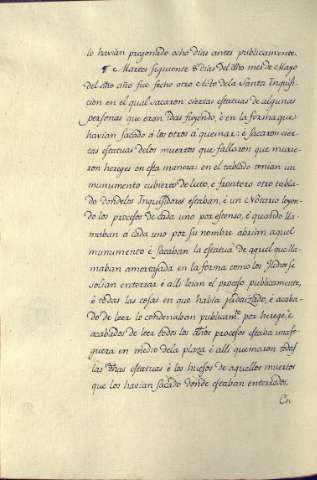 lo havian pregonado ocho dias antes publicamente.
¶ Martes seguiente 8 dias del dho mes de Mayo
del dho año fue fecho otro Auto de la Santa Inquisi-
cion en el qual sacaron ciertas estatuas de algunas
personas que eran idas fuyendo, è en la forma que
havian sacado á los otros á quemar: è sacaron cier-
tas estatuas de los muertos que fallaron que murie-
ron hereges en esta manera: en el tablado tenian un
munumento cubierto de luto, è frontero otro tabla-
do donde los Inquisidores estaban, è un Notario leyen-
do los procesos de cada uno por estenso, è quando lla-
maban á cada uno por su nombre abrian aquel
munumento è sacaban la estatua de aquel que lla-
maban amortajada en la forma como los Judios se
solian enterrar è alli leian el proceso publicamente,
è todas las cosas en que habia judaizado, è acaba-
do de leer lo condenaban publicamte por herege, è
acabados de leer todos los dhos procesos estaba una fo-
guera en medio de la plaza è alli quemaron todas
las dhas estatuas è los huesos de aquellos muertos
que los havian sacado donde estaban enterrados.
En